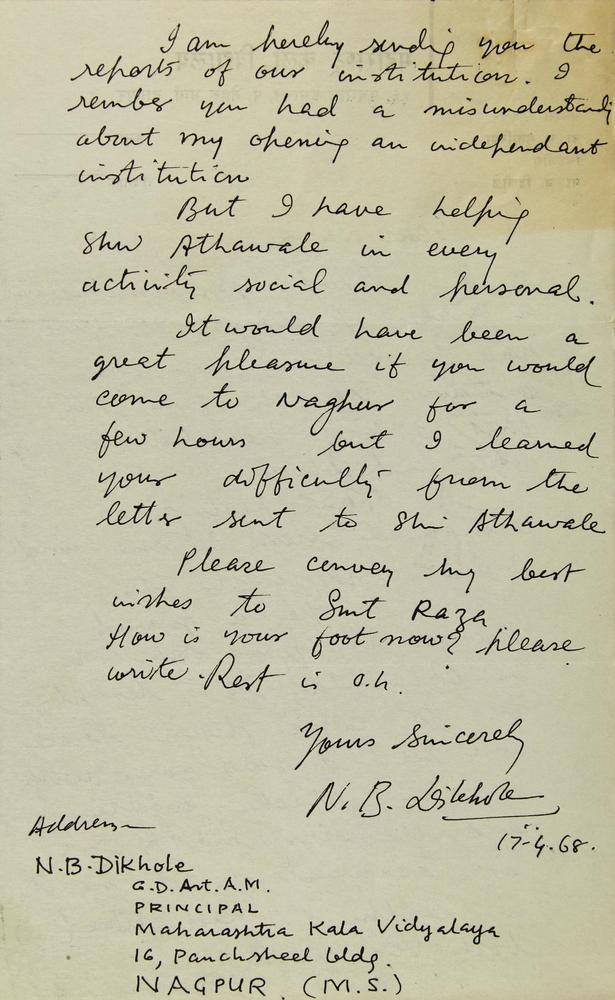 I am hereby sending you the
reports of our institution. I
rember you had a misunderstanding
about my opening an independant
institution
But I have helping
Shri Athawale in every
activity social and personal.
It would have been a
great pleasure if you would
come to Nagpur for a
few hours but I learned
your difficulty from the
letter sent to Shri Athawale
Please convey my best
wishes to Smt Raza
How is your foot now? please
write. Rest is o.k.
Yours Sincerely
N. B. Dikhole
17-4-68.
Address—
N.B. Dikhole
G.D. Art. A.M.
PRINCIPAL
Maharashtra Kala Vidyalaya
16, Panchsheel bldg.
NAGPUR (M.S.)